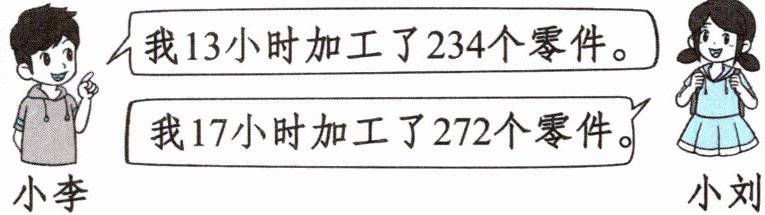 我13小时加工了234个零件。
我17小时加工了272个零件。
小李
小刘